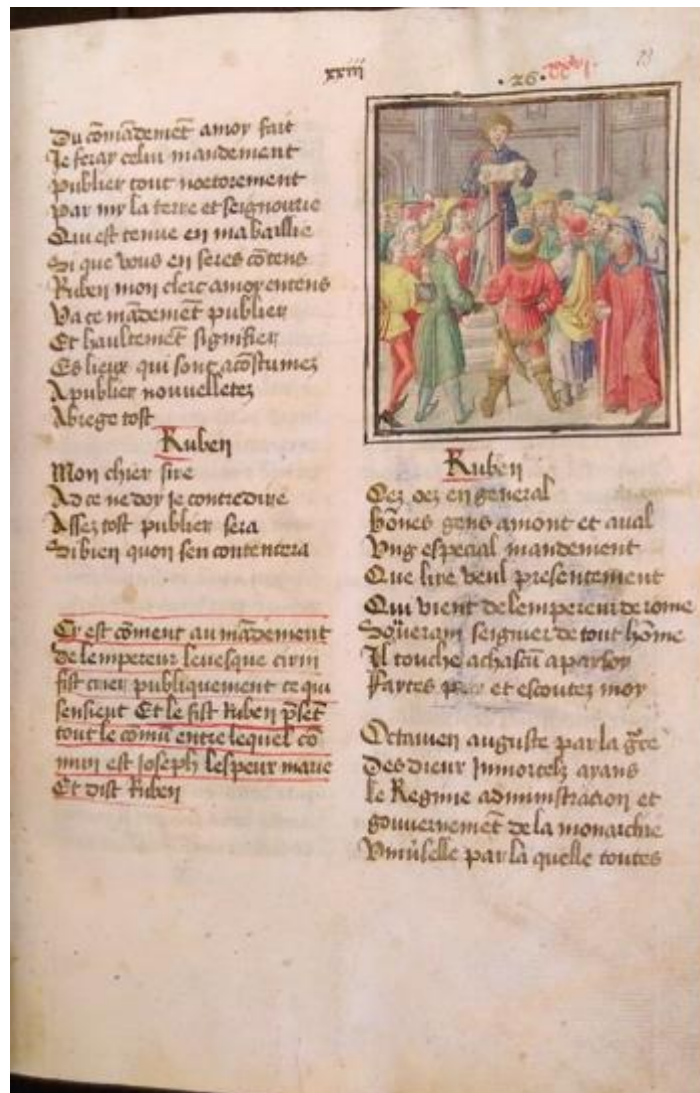 xxiii
.26.
23
Du cōmādemēt a moy fait
Je feray celui mandement
Publier tout notoirement
Par my la terre et seignourie
Qui est tenue en ma baillie
Si que vous en seres cōtens
Ruben mon clerc a moy entens
Va ce mādemēt publier
Et haultemēt signifier
Es lieux qui sont acoustumez
A publier nouvelletez
Abrege tost
Ruben
Mon chier sire
A ce ne doy je contredire
Assez tost publier sera
Si bien quon sen contentera
Cy est cōment au mādement
de lempereur levesque cirin
fist crier publiquement ce qui
sensient Et le fist Ruben p̄sēt
tout le comū entre lequel cō
mun est Joseph lespeux marie
Et dist Ruben
Ruben
Oez oez en general
bōnes gens amont et aval
Ung especial mandement
Que lire veul presentement
Qui vient de lempereur de rome
Souverain seignier de tout hōme
Il touche a chascū a par soy
Faites paix et escoutez moy
Octavien auguste par la grace
Des dieux Inmortelz ayans
le Regime administration et
gouvernemēt de la monarchie
Univ̄selle par la quelle toutes